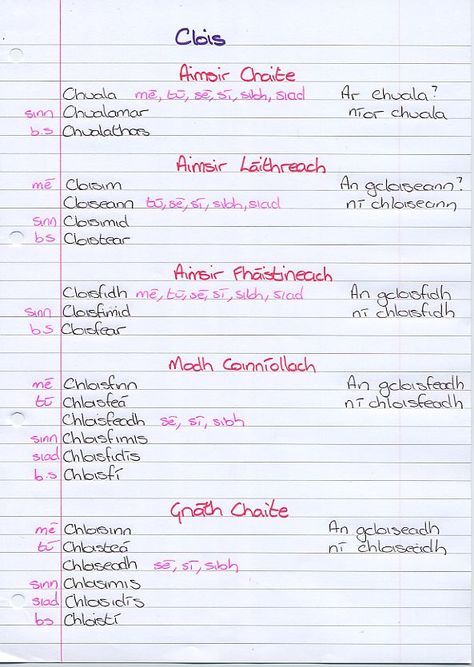 Clois
Aimsir Chaite
Chuala mé, tú, sé, sí, sibh, siad Ar chuala?
sinn Chualamar níor chuala
b.s Chualathas
Aimsir Láithreach
mé Cloisim An gcloiseann?
Cloiseann tú, sé, sí, sibh, siad ní chloiseann
sinn Cloisimid
bs Cloistear
Aimsir Fháistineach
Cloisfidh mé, tú, sé, sí, sibh, siad An gcloisfidh
sinn Cloisfimid ní chloisfidh
b.s Cloisfear
Modh Coinníollach
mé Chloisfinn An gcloisfeadh
tú Chloisfeá ní chloisfeadh
Chloisfeadh sé, sí, sibh
sinn Chloisfimis
siad Chloisfidís
b.s Chloisfí
Gnáth Chaite
mé Chloisinn An gcloiseadh
tú Chloisteá ní chloiseadh
Chloiseadh sé, sí, sibh
sinn Chloisimis
siad Chloisidís
bs Chloistí